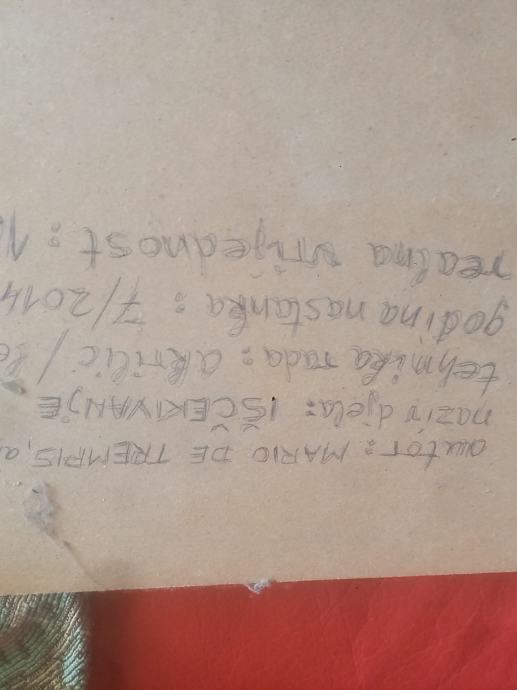 autor: MARIO DE TREMPIS, a
naziv djela: IŠČEKIVANJE
tehnika rada: akrilic /
godina nastanka: 7/2014
realna vrijednost: 1